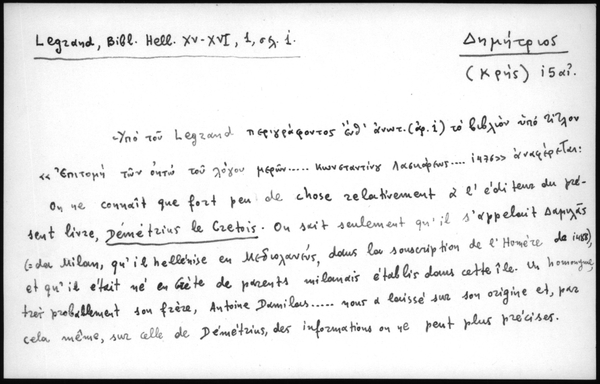 Legrand, Bibl. Hell. XV-XVI, 1, σελ. 1.
Δημήτριος
(Κρής) 15 αἰ.
Ὑπό τοῦ Legrand περιγράφοντος ἔνθ' ἀνωτ. (ἀρ. 1) τό βιβλίον ὑπό τίτλον
«Ἐπιτομή τῶν ὀκτώ τοῦ λόγου μερῶν..... Κωνσταντίνου Λασκάρεως.... 1476» ἀναφέρεται:
On ne connaît que fort peu de chose relativement à l'éditeur du pré-
sent livre, Démétrius le Crétois. On sait seulement qu'il s'appelait Δαμιλᾶς
(= da Milan, qu'il hellénise en Μεδιολανεύς, dans la souscription de l'Homère de 1488),
et qu'il était né en Crète de parents milanais établis dans cette île. Un homonyme,
très probablement son frère, Antoine Damilas..... nous a laissé sur son origine et, par
cela même, sur celle de Démétrius, des informations on ne peut plus précises.